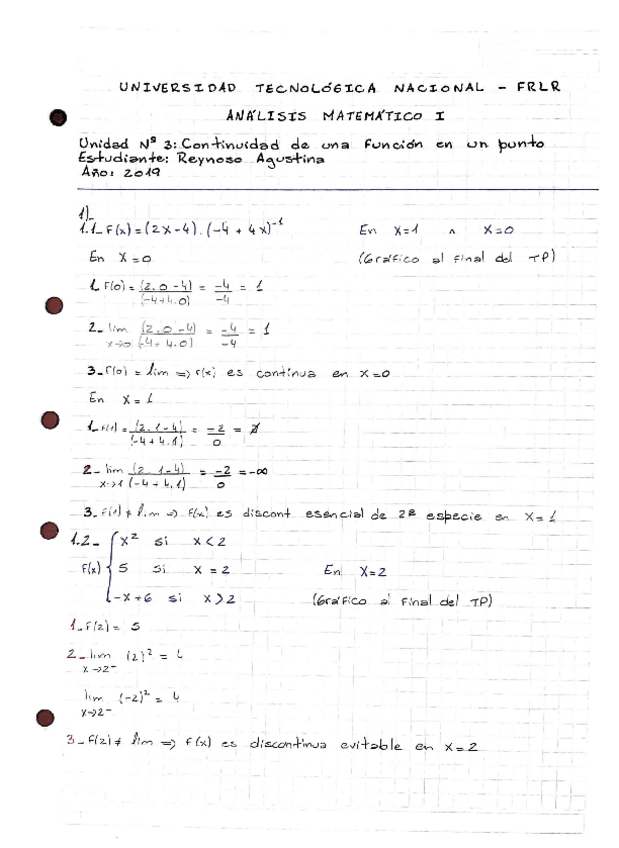 UNIVERSIDAD TECNOLÓGICA NACIONAL - FRLR
ANÁLISIS MATEMÁTICO I
Unidad Nº 3: Continuidad de una función en un punto
Estudiante: Reynoso Agustina
Año: 2019
1)_
1.1_ F(x) = (2x-4) . (-4 + 4x)⁻¹ En x=1 ∧ x=0
En x=0 (Gráfico al final del TP)
1_ F(0) = (2.0-4)/(-4+4.0) = -4/-4 = 1
2_ lim x→0 (2.0-4)/(-4+4.0) = -4/-4 = 1
3_ F(0) = lim ⇒ F(x) es continua en x=0
En x=1
1_ F(1) = (2.1-4)/(-4+4.1) = -2/0 = ∄
2_ lim x→1 (2.1-4)/(-4+4.1) = -2/0 = -∞
3_ F(1) ≠ lim ⇒ F(x) es discont esencial de 2ª especie en x=1
1.2_ x² si x<2
F(x) { 5 si x=2 En x=2
-x+6 si x>2 (Gráfico al final del TP)
1_ F(2) = 5
2_ lim x→2⁻ (2)² = 4
lim x→2⁻ (-2)² = 4
3_ F(2) ≠ lim ⇒ F(x) es discontinua evitable en x=2